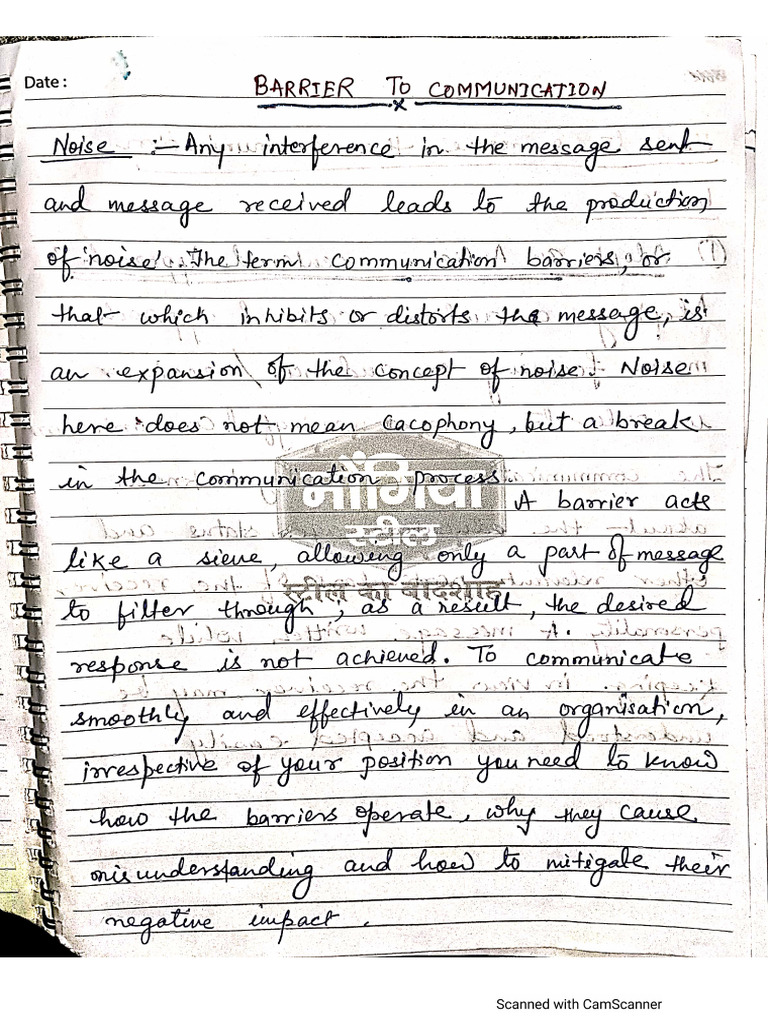 Date :
BARRIER TO COMMUNICATION
Noise :- Any interference in the message sent
and message received leads to the production
of 'noise'. The term communication barriers, or
that which inhibits or distorts the message, is
an expansion of the concept of noise. Noise
here does not mean cacophony, but a break
in the communication process
नांगिया
A barrier acts
स्टील
like a sieve, allowing only a part of message
स्टील का बादशाह
to filter through ; as a result, the desired
response is not achieved. To communicate
smoothly and effectively in an organisation,
irrespective of your position you need to know
how the barriers operate, why they cause
misunderstanding and how to mitigate their
negative impact.
Scanned with CamScanner